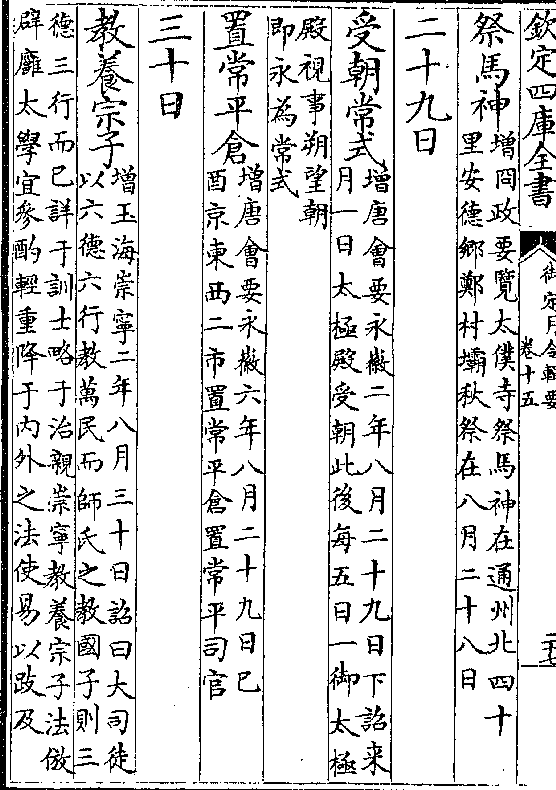 欽定四庫全書
御定月令輯要
卷十五
祭馬神
增冏政要覽太僕寺祭馬神在通州北四十
里安德鄉鄭村壩秋祭在八月二十八日
二十九日
受朝常式
增唐會要永徽二年八月二十九日下詔来
月一日太極殿受朝此後每五日一御太極
殿視事朔望朝
即永為常式
置常平倉
增唐會要永徽六年八月二十九日已
酉京東西二市置常平倉置常平司官
三十日
教養宗子
增玉海崇寧二年八月三十日詔曰大司徒
以六德六行教萬民而師氏之教國子則三
德三行而已詳于訓士略于治親崇寧教養宗子法倣
辟廱太學宜參酌輕重降于内外之法使易以跂及